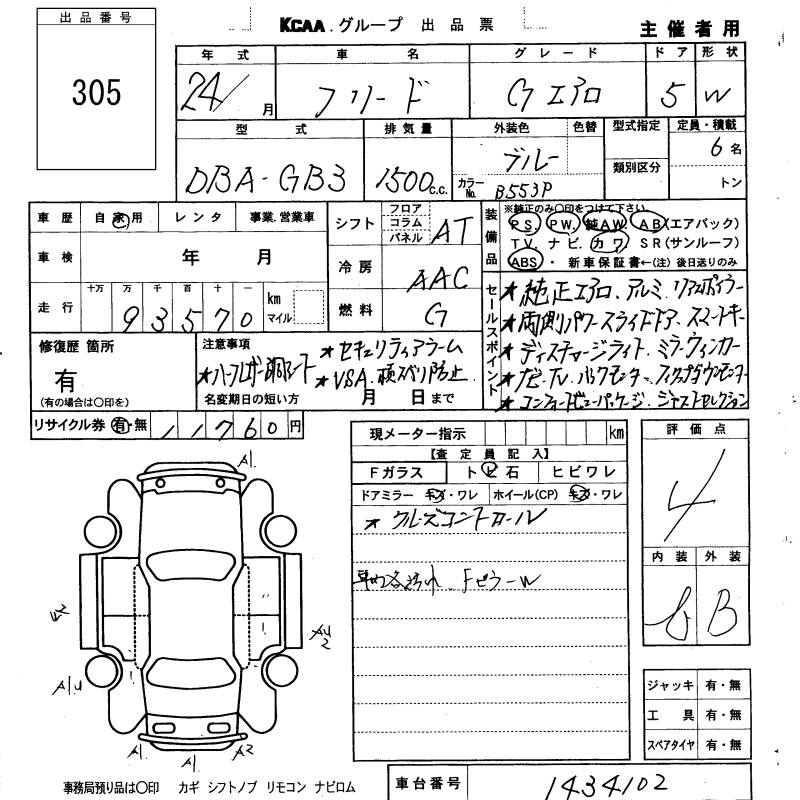 出品番号
305
KCAA.グループ 出品票
主催者用
年式 車名 グレード ドア 形状
24/ 月 フリード Gエアロ 5 W
型式 排気量 外装色 色替 型式指定 定員・積載
DBA-GB3 1500c.c. ブルー 類別区分 6名
カラーNo. B553P トン
車歴 自家用 レンタ 事業.営業車
車検 年 月
走行 十万 万 千 百 十 一
93570 km マイル
シフト フロア コラム パネル AT
冷房 AAC
燃料 G
装備品 ※純正のみ〇印をつけて下さい。
PS. PW. 純AW. AB(エアバック)
TV. ナビ. カワ SR(サンルーフ)
ABS・ 新車保証書←(注)後日送りのみ
セールスポイント
★純正エアロ.アルミ.リアスポイラー
★両側パワースライドドア.スマートキー
★ディスチャージライト.ミラーウィンカー
★ナビ.TV.バックモニター.
★コンフォートビューパッケージ.ジャストセレクション
修復歴 箇所
有
(有の場合は〇印を)
注意事項
★セキュリティアラーム
★ハーフレザー調シート ★VSA.横スベリ防止
名変期日の短い方 月 日まで
リサイクル券 有・無 11760円
現メーター指示 km
【査定員記入】
Fガラス トビ石 ヒビワレ
ドアミラー キズ・ワレ ホイール(CP) キズ・ワレ
★クルーズコントロール
車内各汚れ. FピラーW
評価点
4
内装 外装
B
ジャッキ 有・無
工具 有・無
スペアタイヤ 有・無
A1.
A2
A1
A1
A2
事務局預り品は〇印 カギ シフトノブ リモコン ナビロム
車台番号 1434102